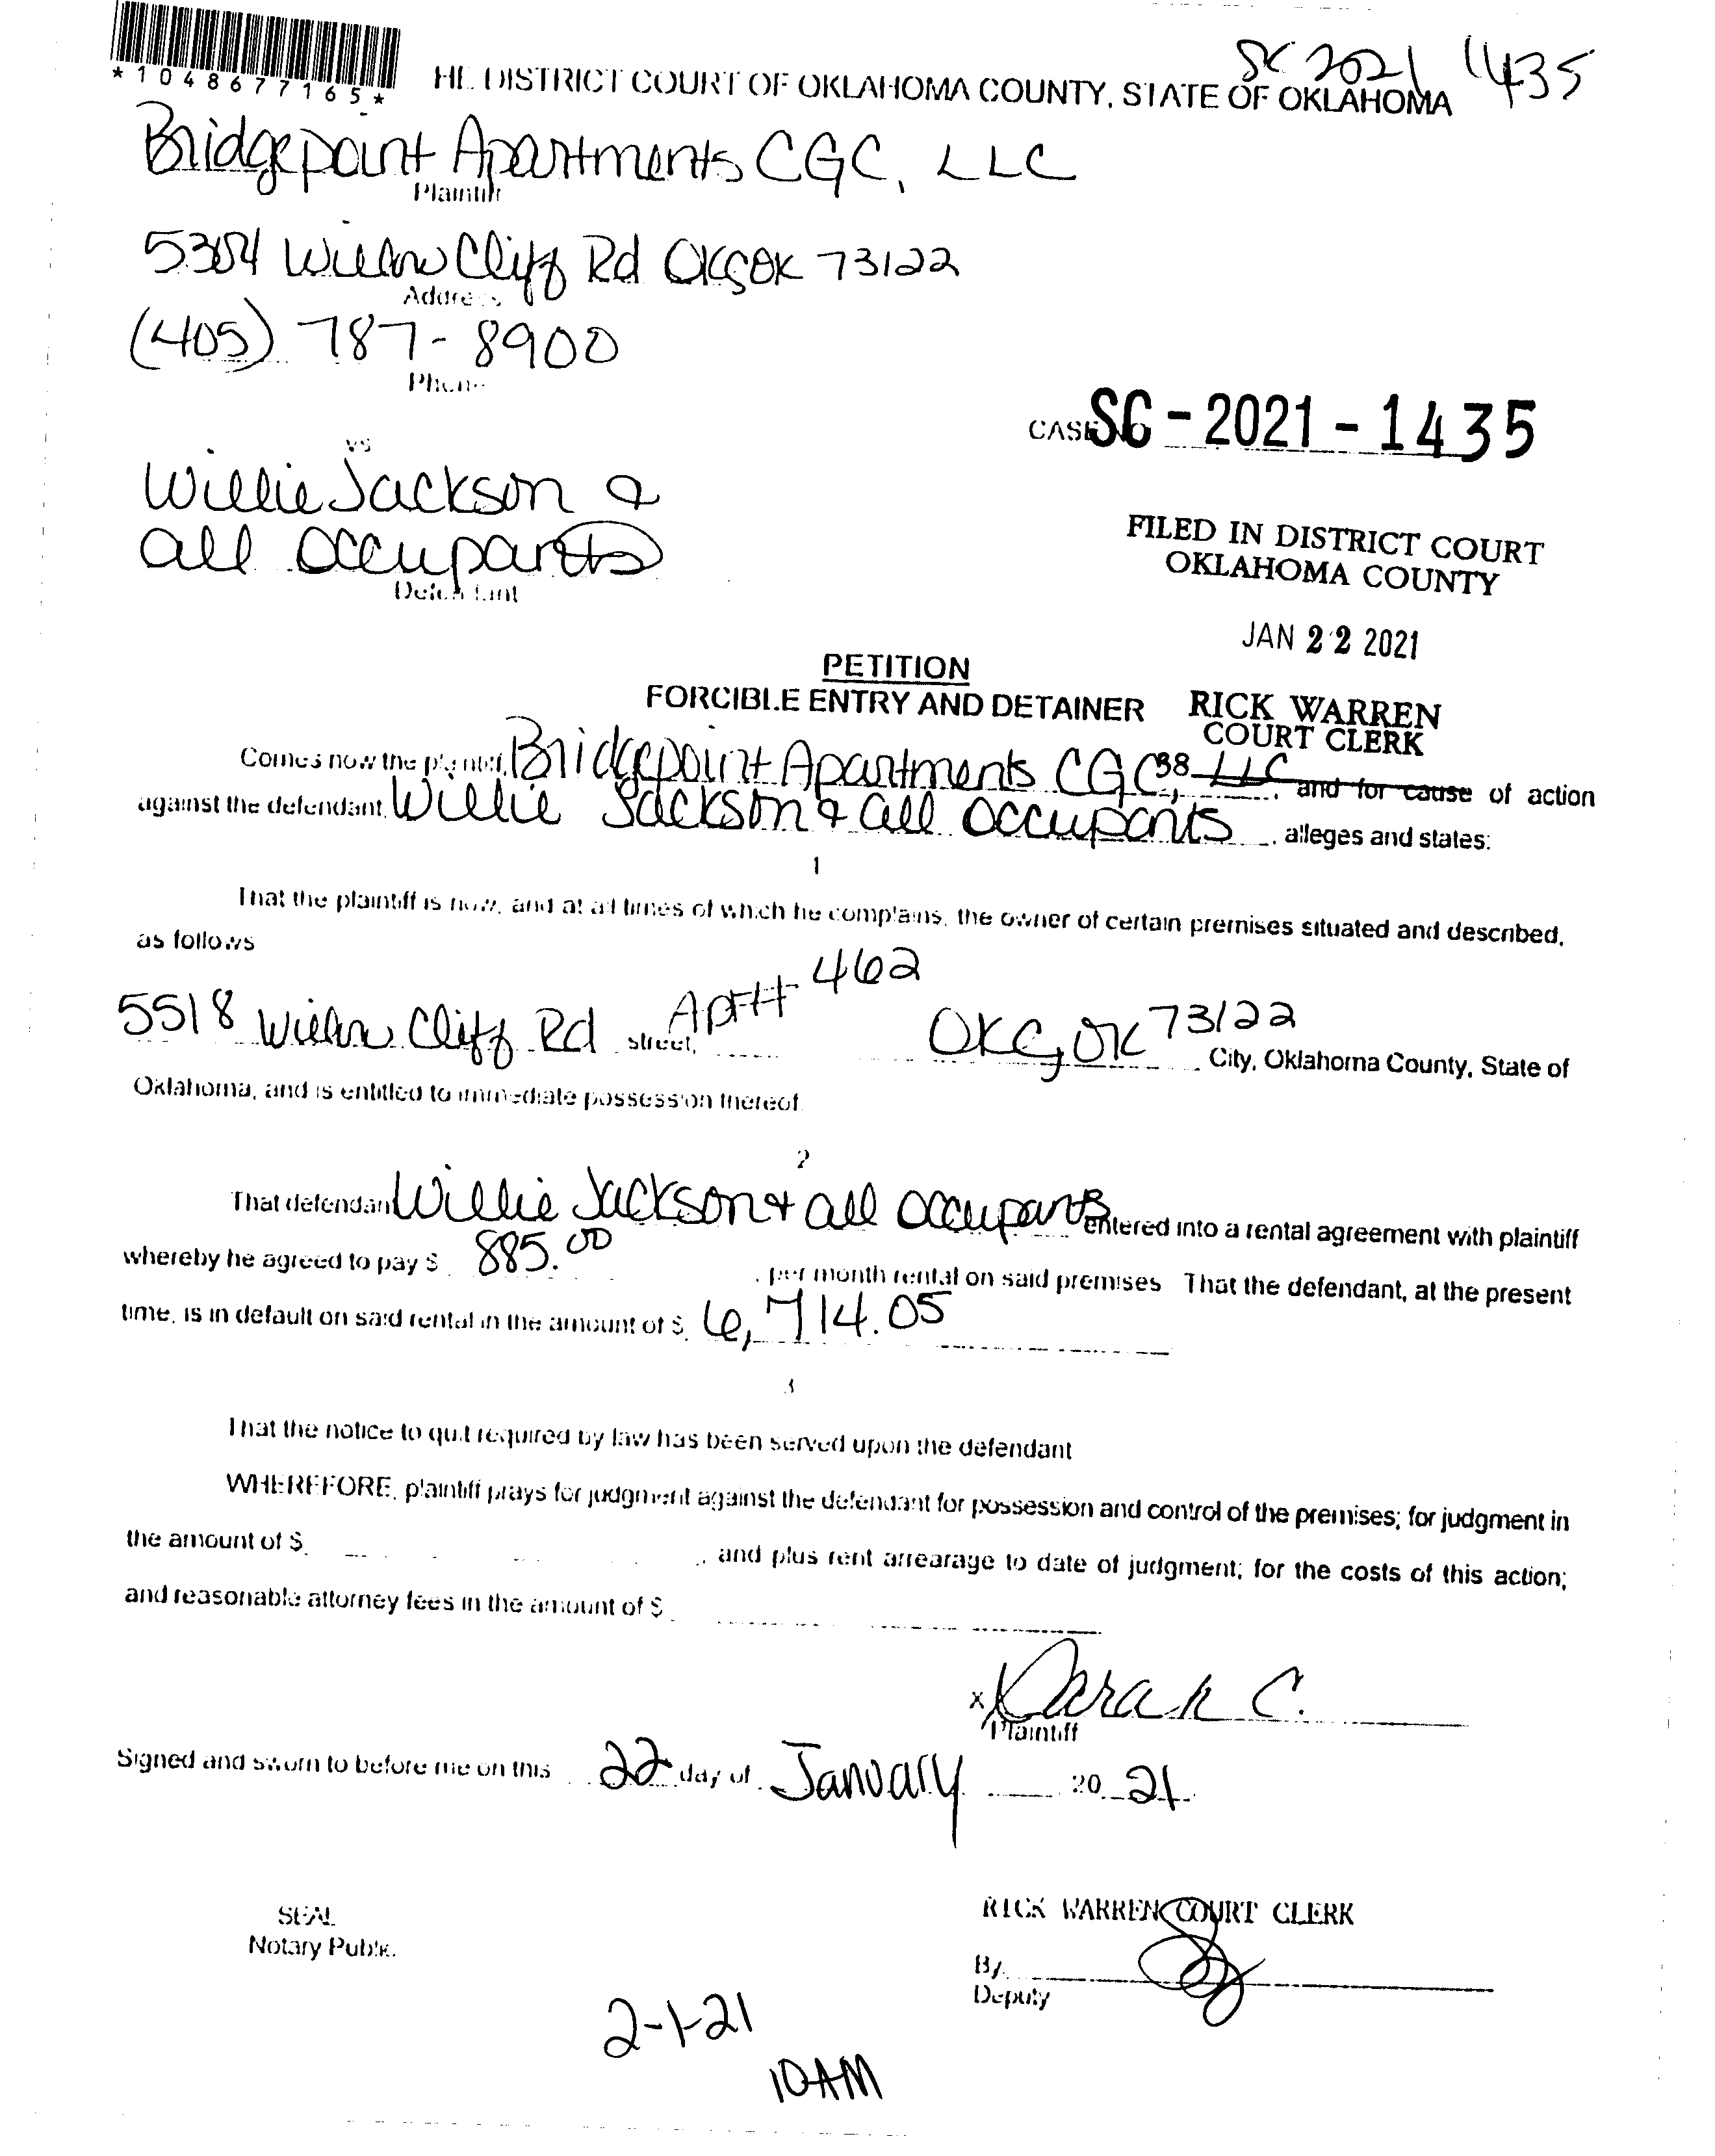 SC 2021 1435
*1048677165*
HE DISTRICT COURT OF OKLAHOMA COUNTY, STATE OF OKLAHOMA
Bridgepoint Apartments CGC, LLC
Plaintiff
5304 Willow Cliff Rd OKC, OK 73122
Address
(405) 787-8900
Phone
CASE NO SC-2021-1435
vs
Willie Jackson &
all occupants
Defendant
FILED IN DISTRICT COURT
OKLAHOMA COUNTY
JAN 22 2021
PETITION
FORCIBLE ENTRY AND DETAINER
RICK WARREN
COURT CLERK
38
Comes now the plaintiff, Bridgepoint Apartments CGC, LLC, and for cause of action
against the defendant, Willie Jackson & all occupants, alleges and states:
1
That the plaintiff is now, and at all times of which he complains, the owner of certain premises situated and described,
as follows
5518 Willow Cliff Rd street, Apt# 462 OKC, OK 73122 City, Oklahoma County, State of
Oklahoma, and is entitled to immediate possession thereof.
2
That defendant Willie Jackson & all occupants entered into a rental agreement with plaintiff
whereby he agreed to pay $ 885.00, per month rental on said premises That the defendant, at the present
time, is in default on said rental in the amount of $ 6,714.05
3
That the notice to quit required by law has been served upon the defendant
WHEREFORE, plaintiff prays for judgment against the defendant for possession and control of the premises; for judgment in
the amount of $ , and plus rent arrearage to date of judgment; for the costs of this action;
and reasonable attorney fees in the amount of $
x Darah C.
Plaintiff
Signed and sworn to before me on this 22 day of January 20 21
SEAL
Notary Public
RICK WARREN COURT CLERK
By
Deputy
2-1-21
10AM